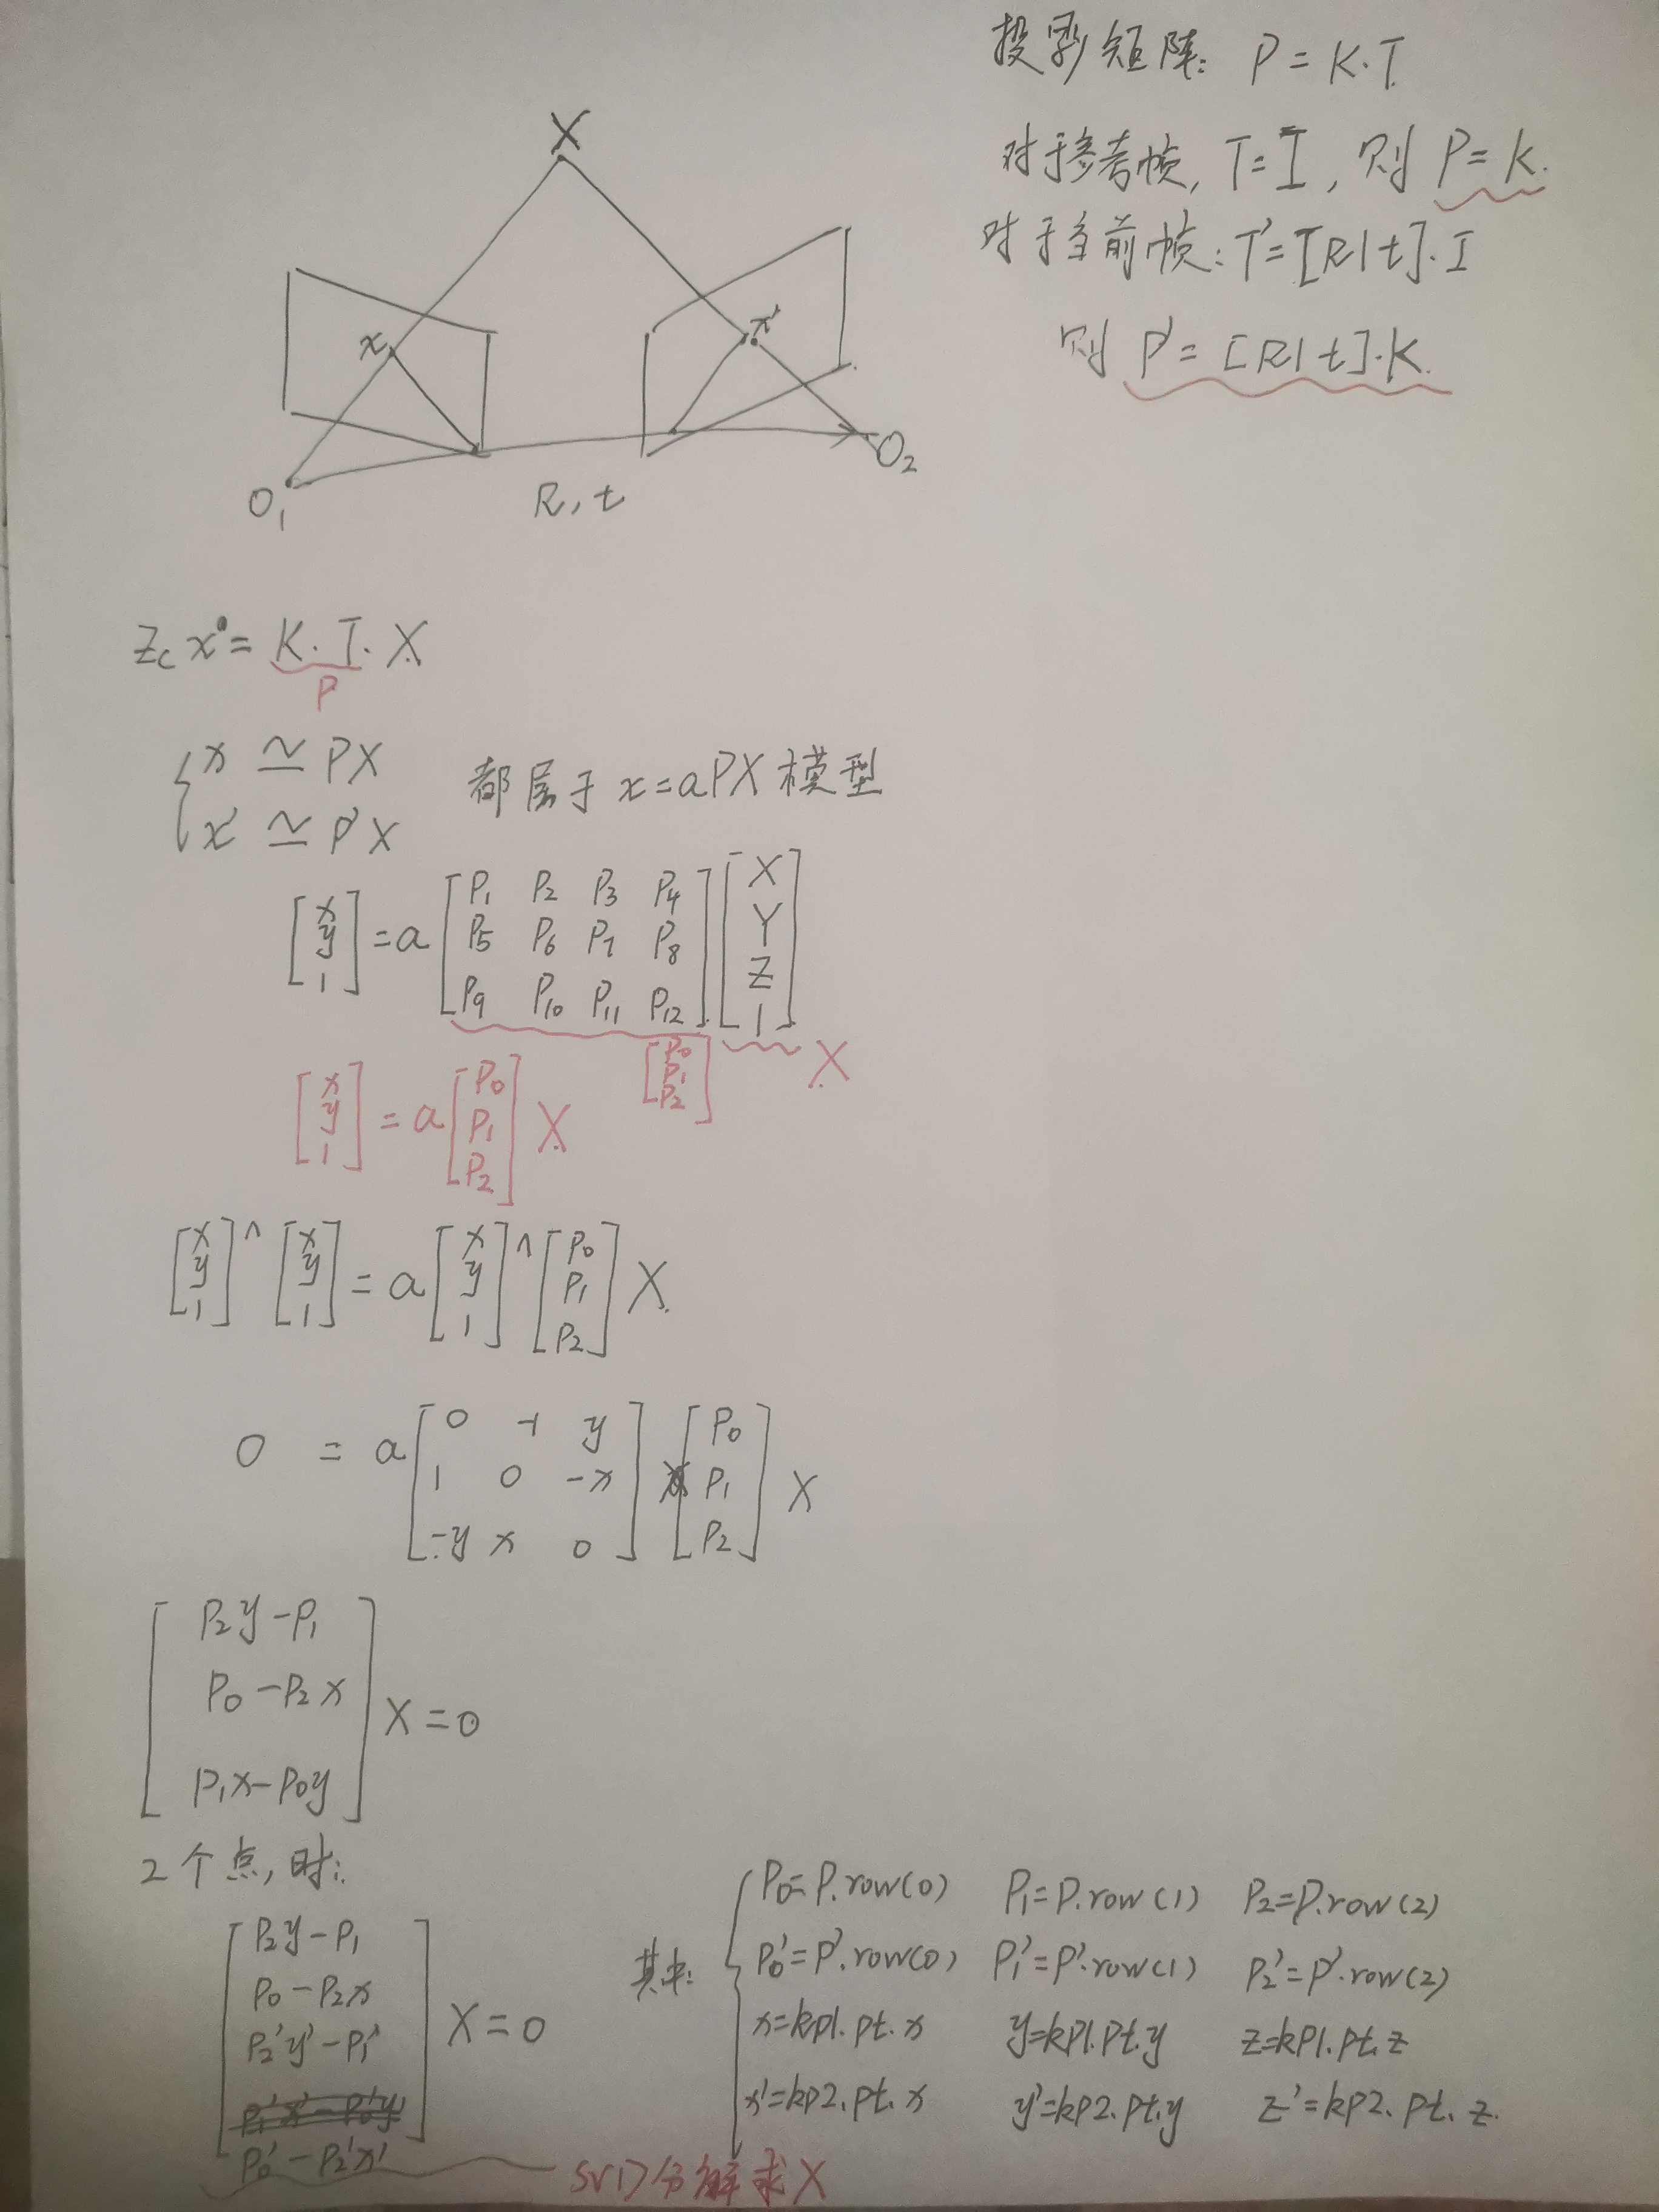 投影矩阵: P = K·T
对于参考帧, T=I, 则 P=K.
对于当前帧: T'=[R|t]·I
则 P' = [R|t]·K.
X
x
x'
O₁
R, t
O₂
Zc x = K·T·X
P
{ x ≃ PX
x' ≃ P'X
都属于 x=aPX 模型
[x y 1] = a [P₁ P₂ P₃ P₄
P₅ P₆ P₇ P₈
P₉ P₁₀ P₁₁ P₁₂] [X Y Z 1]
[P₀ P₁ P₂] X
[x y 1] = a [P₀ P₁ P₂] X
[x y 1]^ [x y 1] = a [x y 1]^ [P₀ P₁ P₂] X
0 = a [0 -1 y
1 0 -x
-y x 0] [P₀ P₁ P₂] X
[P₂y-P₁
P₀-P₂x
P₁x-P₀y] X=0
2个点,时:
[P₂y-P₁
P₀-P₂x
P₂'y'-P₁'
P₀'-P₂'x'] X=0
其中: { P₀=P.row(0) P₁=P.row(1) P₂=P.row(2)
P₀'=P'.row(0) P₁'=P'.row(1) P₂'=P'.row(2)
x=kp1.pt.x y=kp1.pt.y z=kp1.pt.z
x'=kp2.pt.x y'=kp2.pt.y z'=kp2.pt.z.
SVD分解求X